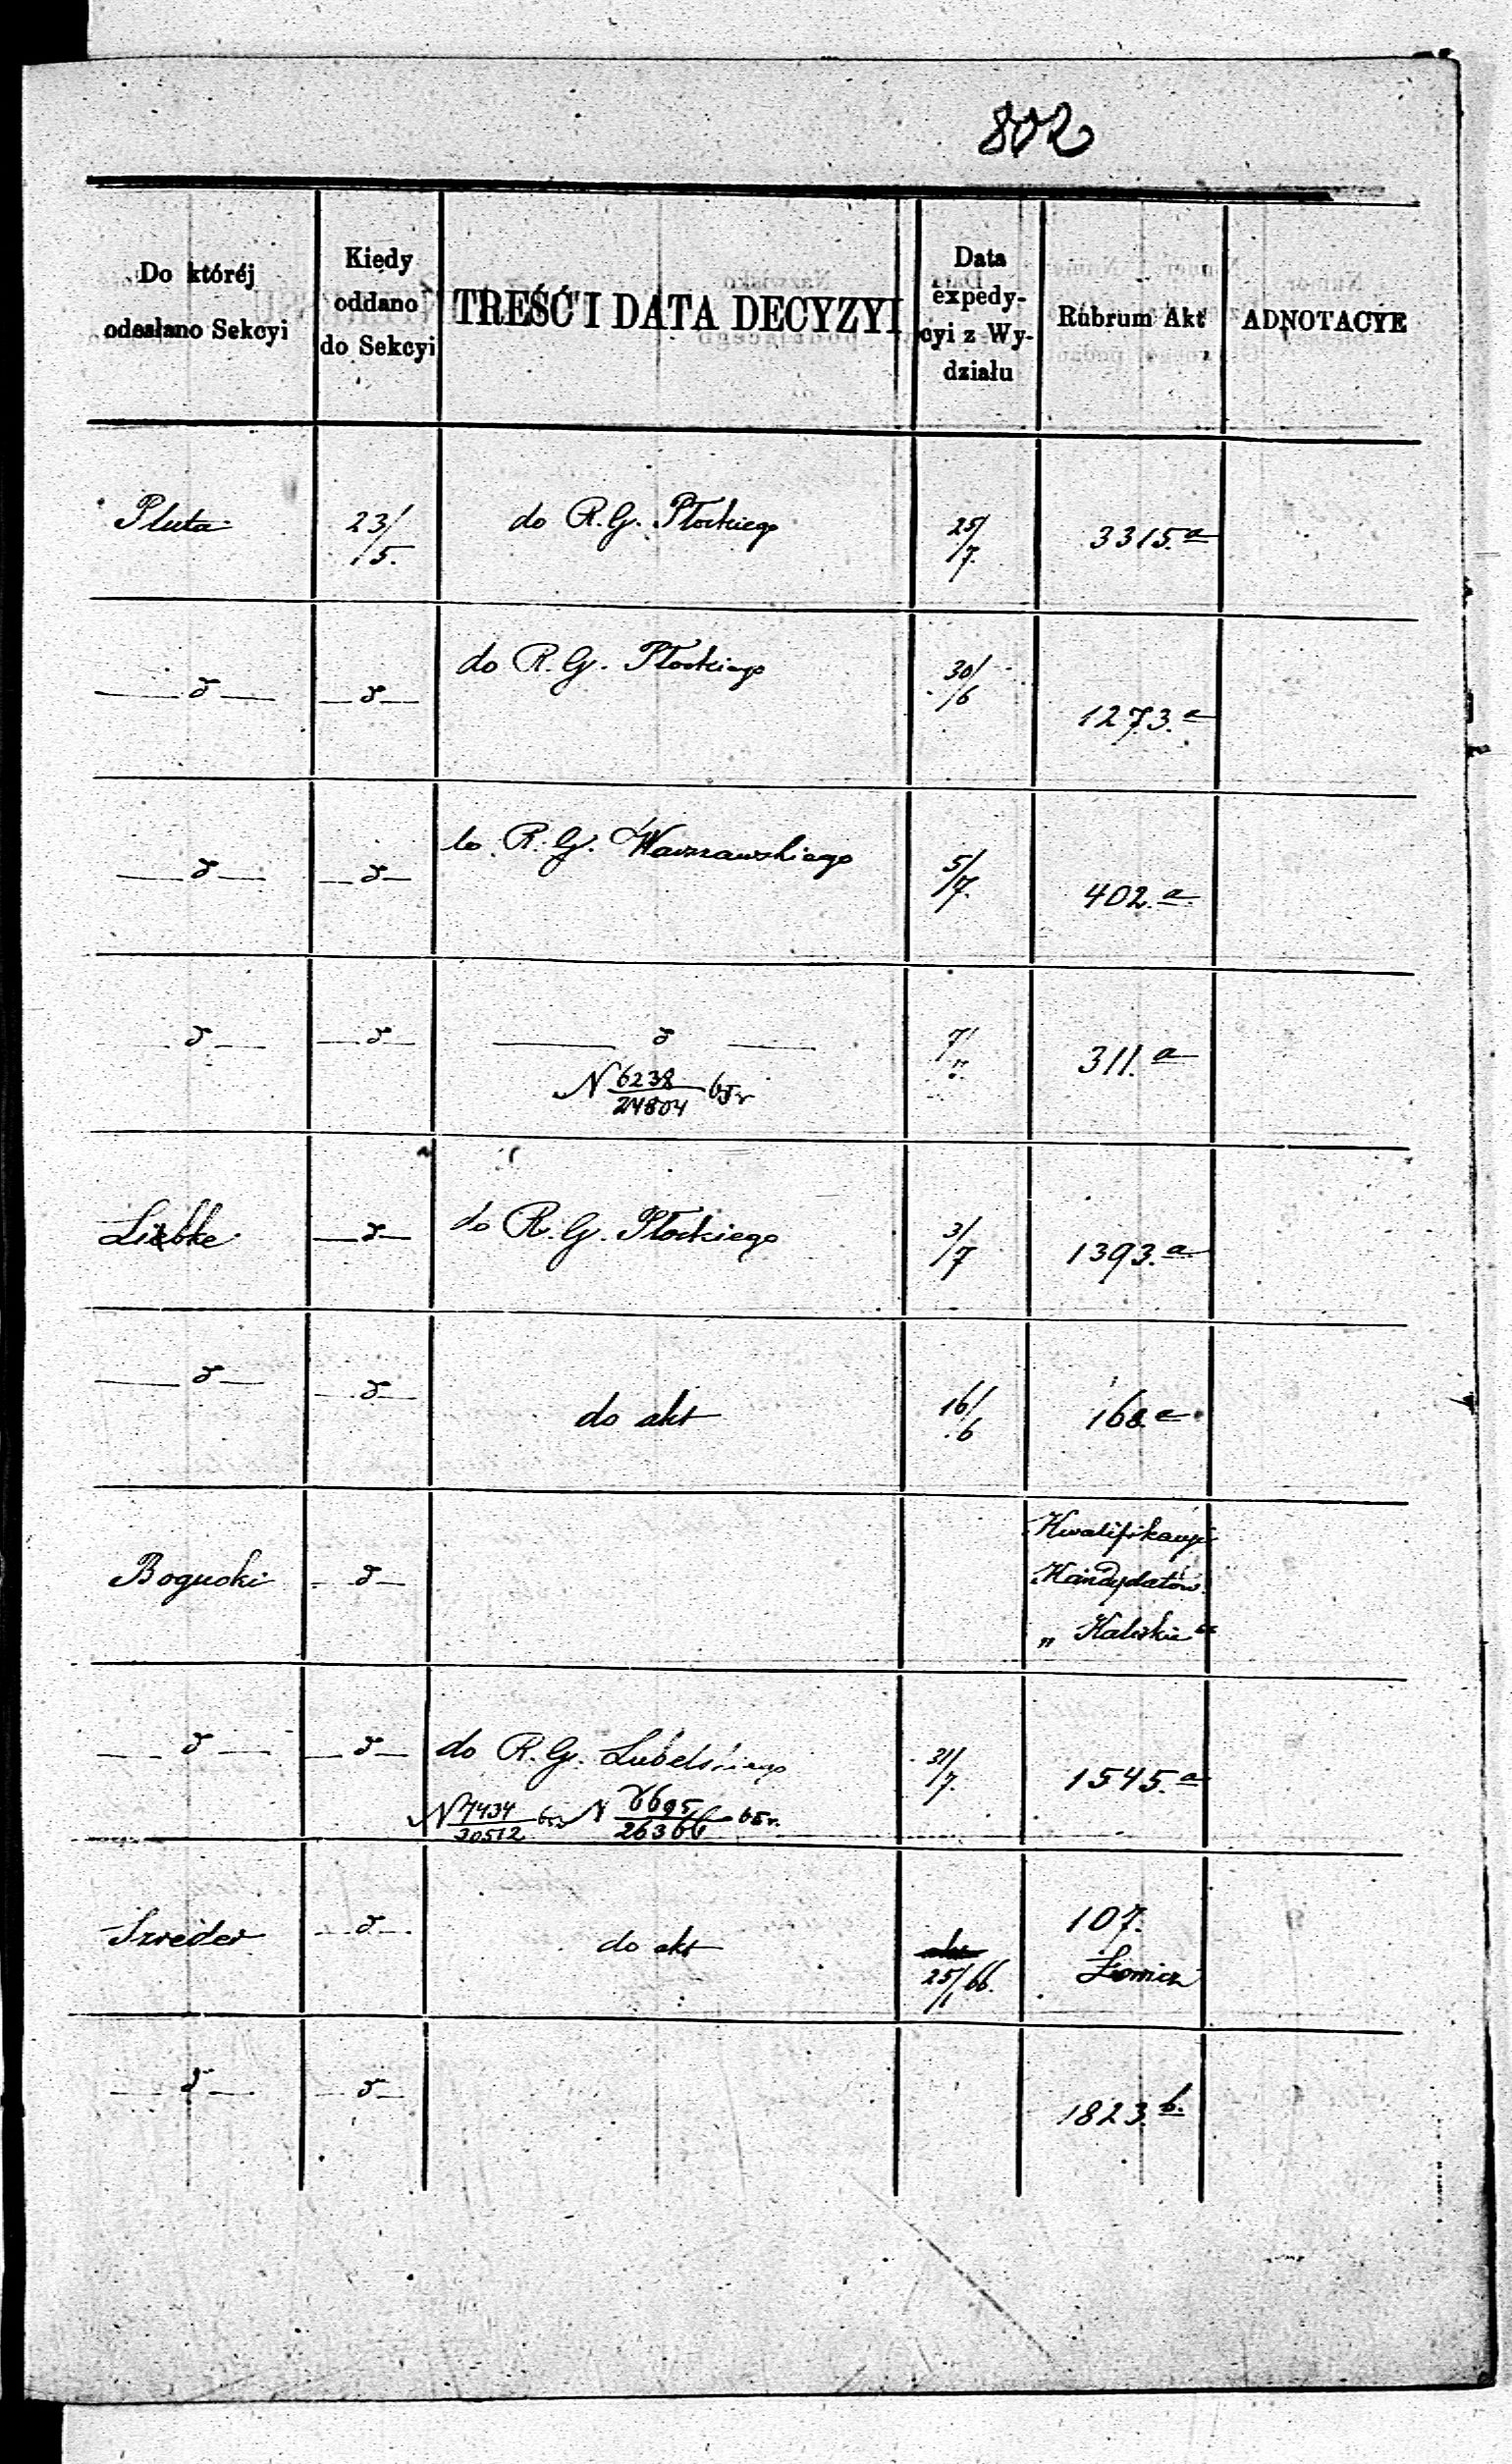 802
Do któréj odesłano Sekcyi
Kiedy oddano do Sekcyi
TREŚĆ I DATA DECYZYI
Data expedycyi z Wydziału
Rubrum Akt
ADNOTACYE
Pluta 23/5. do R. G. Płockiego 25/7. 3315.a
—d— —d— do R. G. Płockiego 30/6 1273.a
—d— —d— do R. G. Warszawskiego 5/7. 402.a
—d— —d— —d— 7/". 311.a
N 6238/24804 65r
Liebke —d— do R. G. Płockiego 3/7 1393.a
—d— —d— do akt 16/6 168.a
Kwalifikacye
Bogucki —d— Kandydatów
„ Kaliskie "
—d— —d— do R. G. Lubelskiego 31/7. 1545.a
N 7434/30512 65r N 6695/26366 65r.
Szreder —d— do akt 25/1 66. 107.
Łowicz
—d— —d— 1823.b.